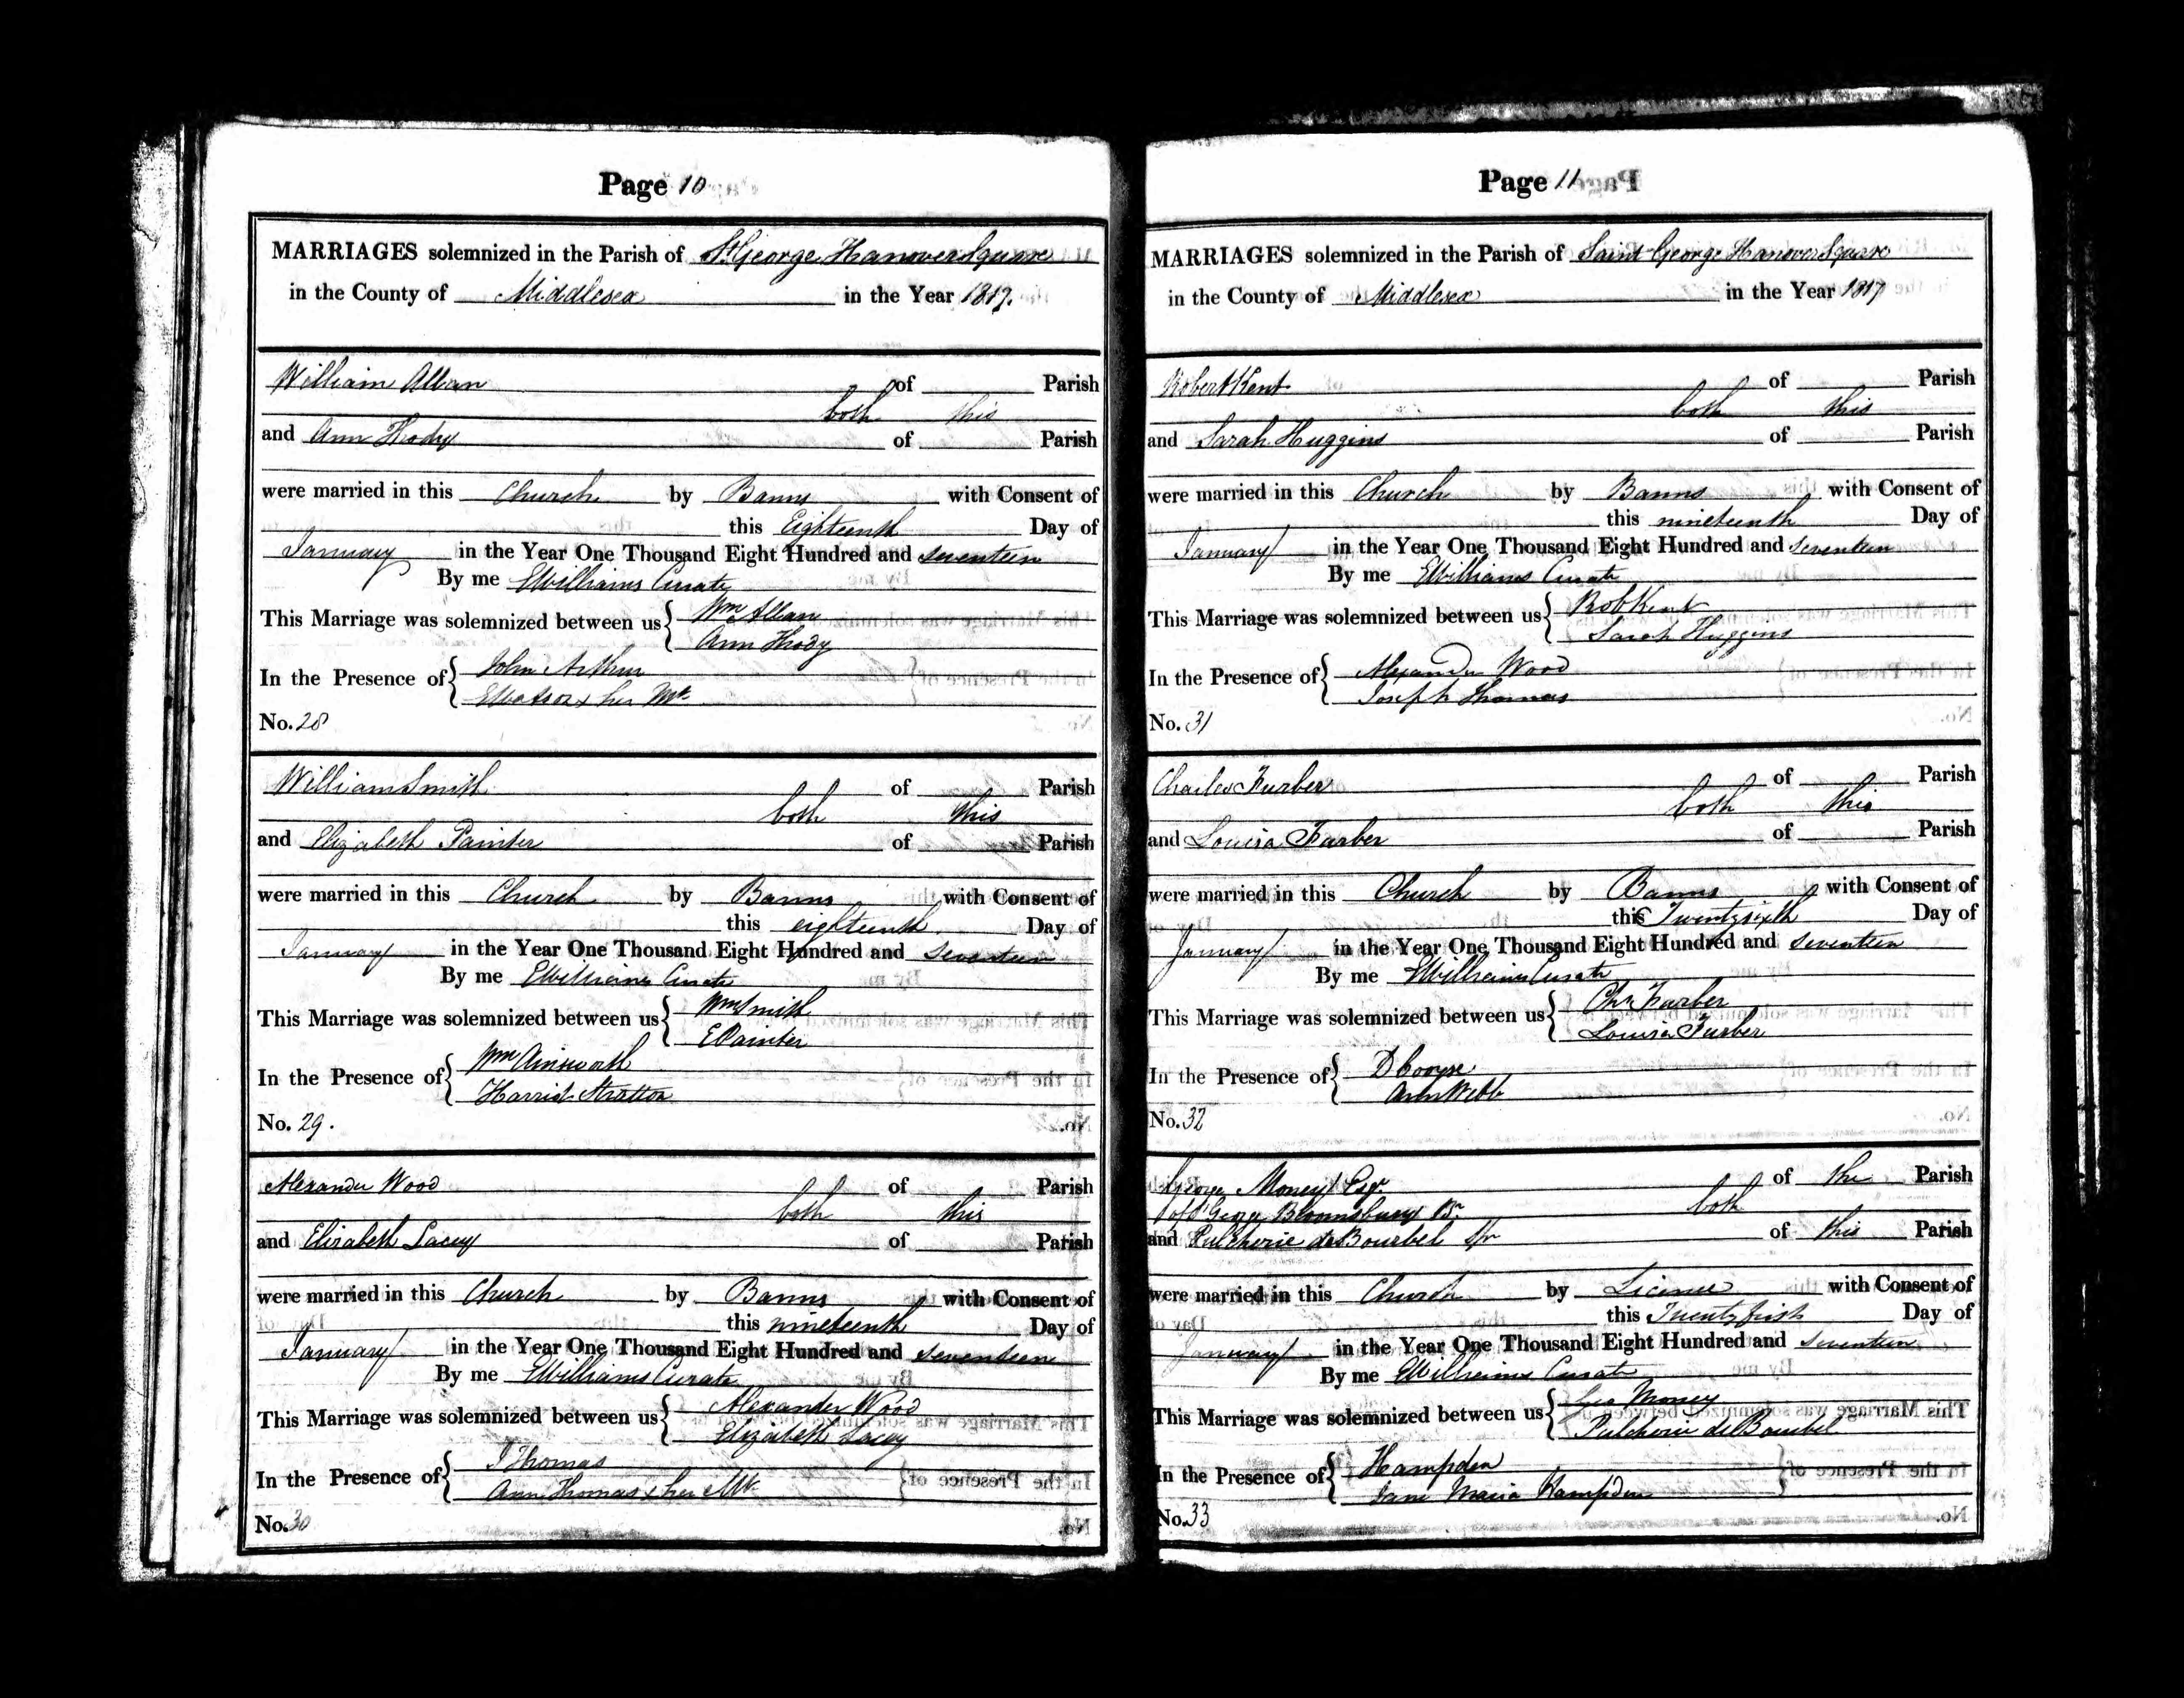 Page 10
MARRIAGES solemnized in the Parish of St George Hanover Square
in the County of Middlesex in the Year 1817.
William Allan of Parish
both this
and Ann Hody of Parish
were married in this Church by Banns with Consent of
this Eighteenth Day of
January in the Year One Thousand Eight Hundred and seventeen
By me EWilliams Curate
This Marriage was solemnized between us { Wm Allan
Ann Hody
In the Presence of { John Arthur
EWatson x her Mk
No. 28
William Smith of Parish
both this
and Elizabeth Painter of Parish
were married in this Church by Banns with Consent of
this eighteenth Day of
January in the Year One Thousand Eight Hundred and Seventeen
By me EWilliams Curate
This Marriage was solemnized between us { Wm Smith
E Painter
In the Presence of { Wm Ainsworth
Harriet Stratton
No. 29.
Alexander Wood of Parish
both this
and Elizabeth Lacey of Parish
were married in this Church by Banns with Consent of
this nineteenth Day of
January in the Year One Thousand Eight Hundred and seventeen
By me EWilliams Curate
This Marriage was solemnized between us { Alexander Wood
Elizabeth Lacey
In the Presence of { J Thomas
Ann Thomas x her Mk
No. 30
Page 11
MARRIAGES solemnized in the Parish of Saint George Hanover Square
in the County of Middlesex in the Year 1817
Robert Kent of Parish
both this
and Sarah Huggins of Parish
were married in this Church by Banns with Consent of
this nineteenth Day of
January in the Year One Thousand Eight Hundred and seventeen
By me EWilliams Curate
This Marriage was solemnized between us { Rob Kent
Sarah Huggins
In the Presence of { Alexander Wood
Joseph Thomas
No. 31
Charles Furber of Parish
both this
and Louisa Furber of Parish
were married in this Church by Banns with Consent of
this Twentysixth Day of
January in the Year One Thousand Eight Hundred and seventeen
By me EWilliams Curate
This Marriage was solemnized between us { Furber
Louisa Furber
In the Presence of {
Ann Webb
No. 32
George Money Esqr. of the Parish
of St George Bloomsbury Br. both
and Pulcherie de Bourbel Spr of this Parish
were married in this Church by Licence with Consent of
this Twentyfirst Day of
January in the Year One Thousand Eight Hundred and seventeen
By me EWilliams Curate
This Marriage was solemnized between us { Geo Money
Pulcherie de Bourbel
In the Presence of { Hampden
Jane Maria Hampden
No. 33